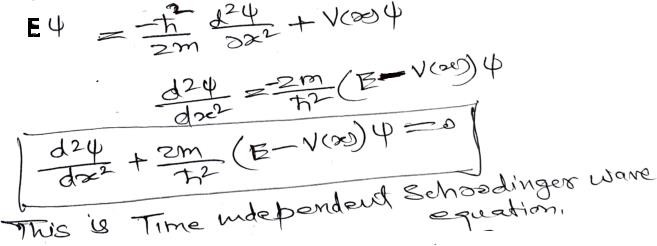 Eψ = -ħ²/2m d²ψ/∂x² + V(x)ψ
d²ψ/dx² = -2m/ħ² (E - V(x)) ψ
d²ψ/dx² + 2m/ħ² (E - V(x)) ψ = 0
This is Time independent Schoodinger wave
equation.